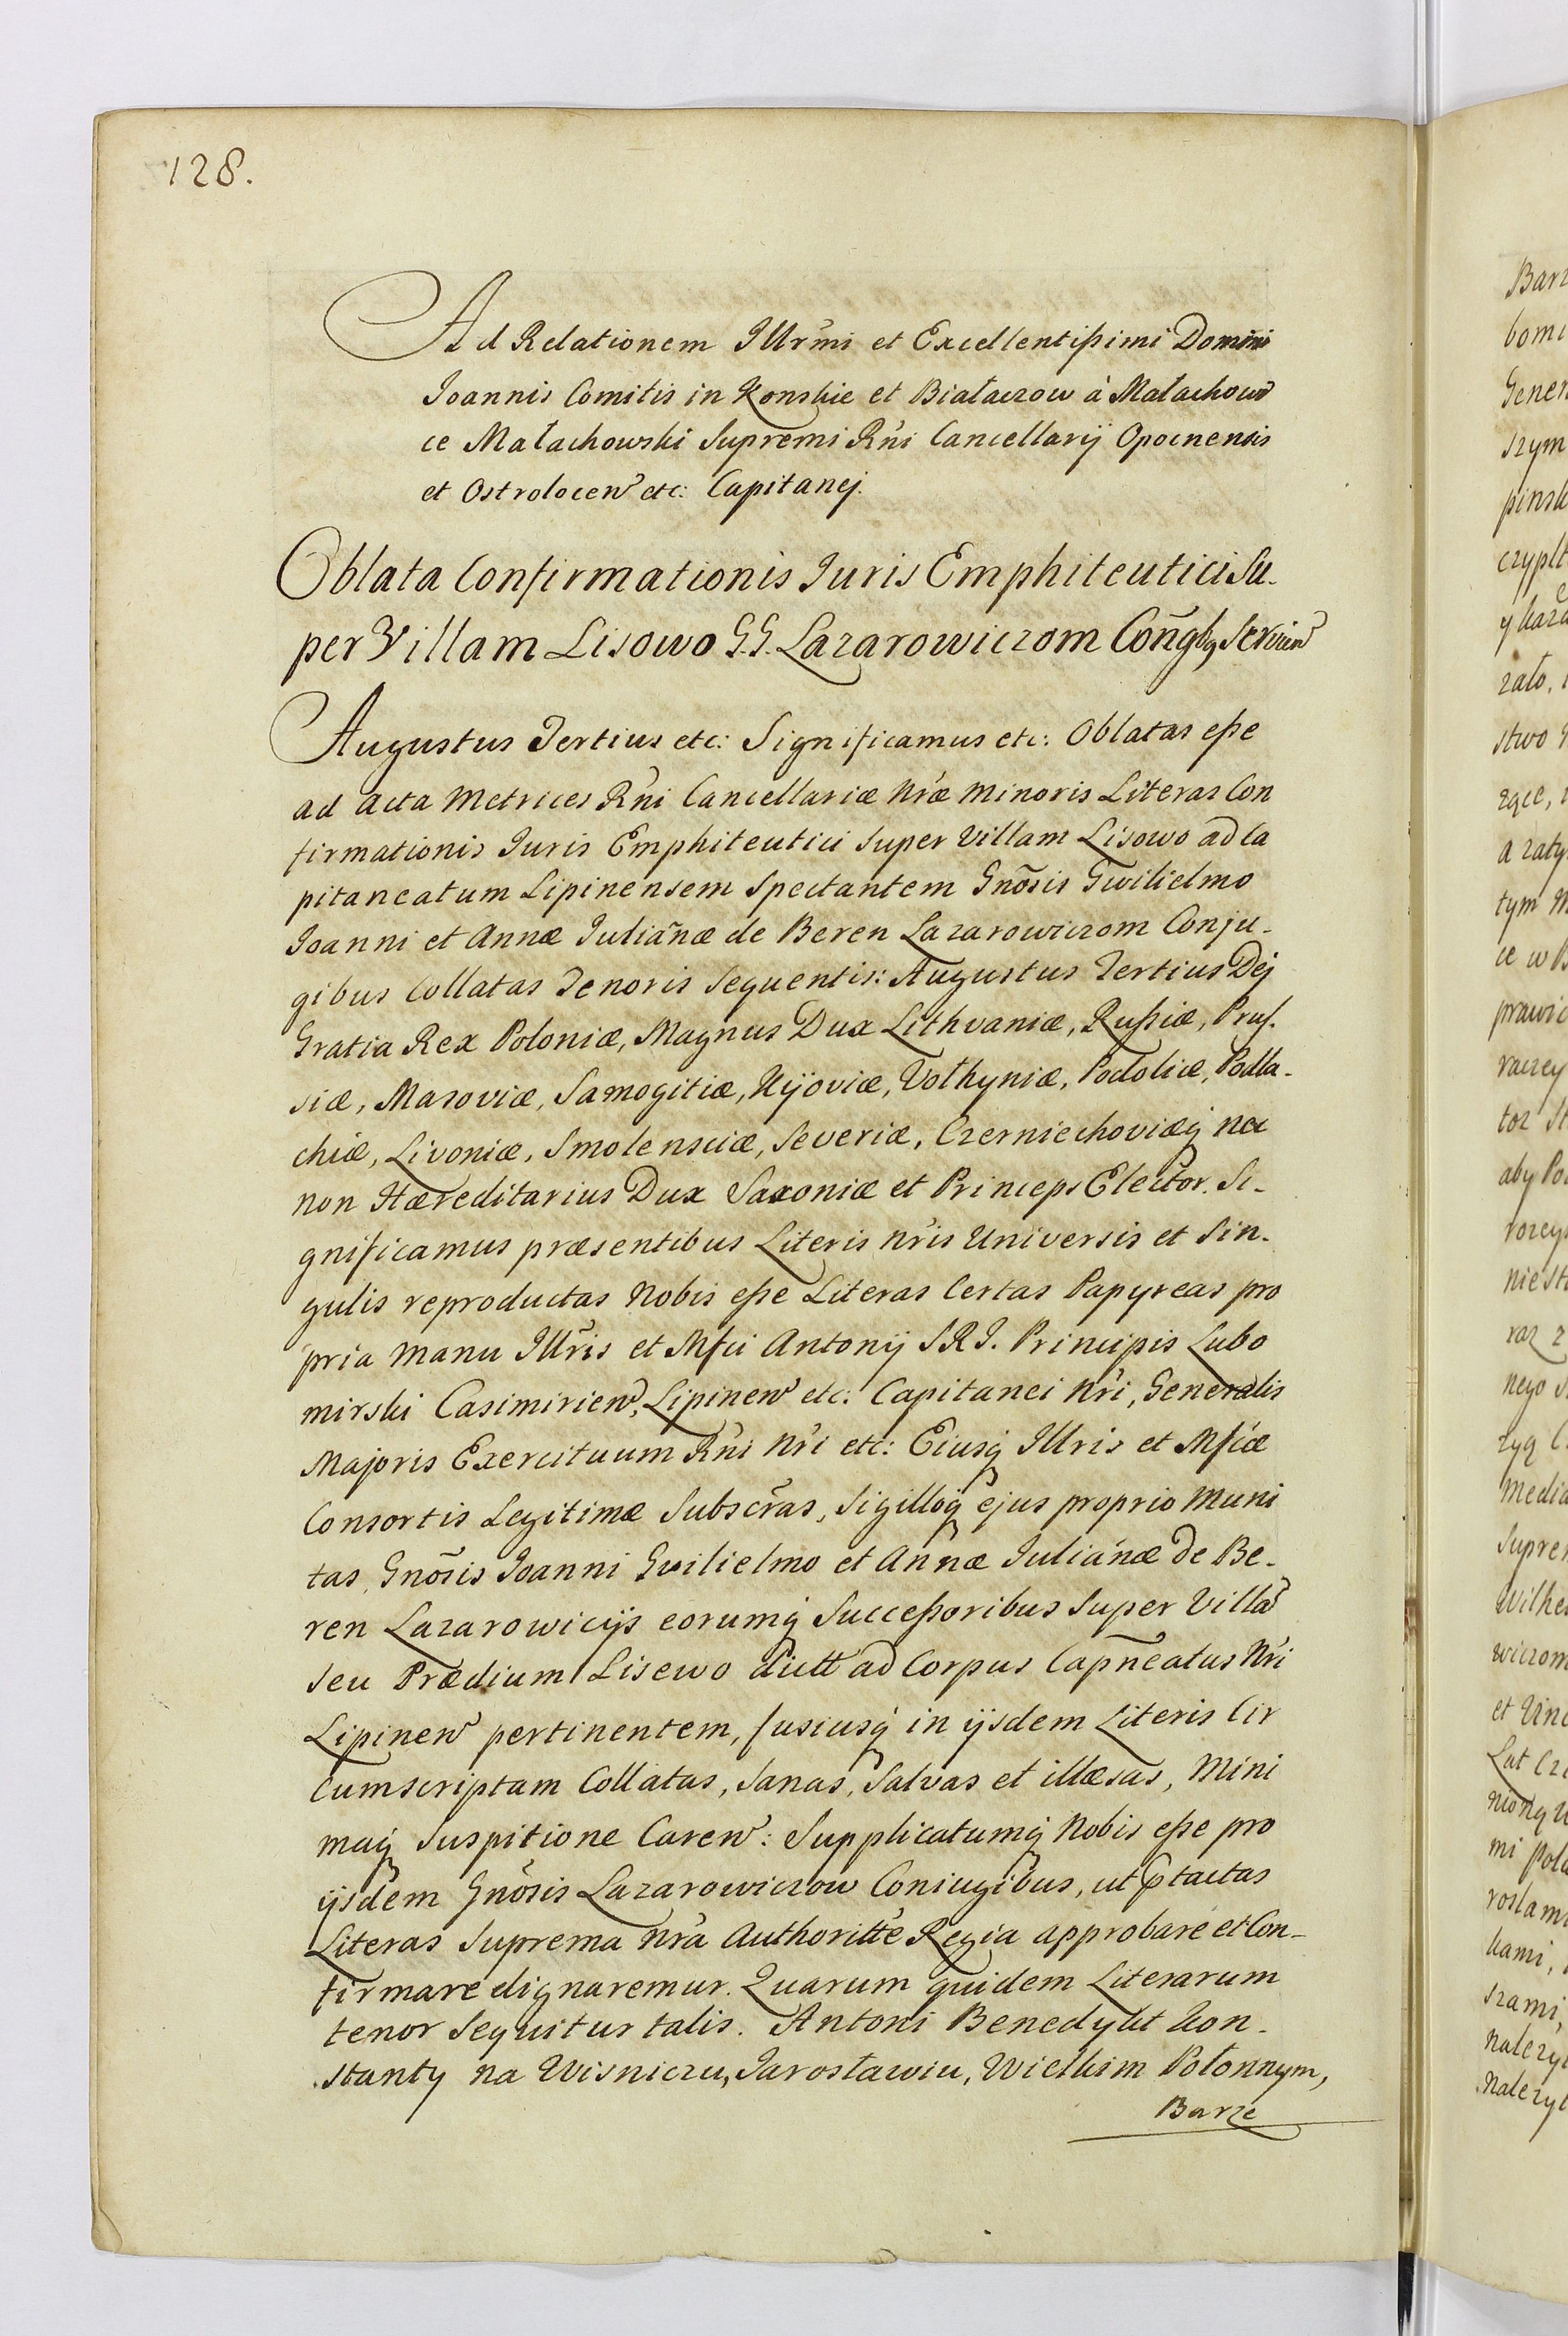 128.
Ad Relationem Illrmi et Excellentissimi Domini
Joannis Comitis in Konskie et Białaczow à Małachow
ce Małachowski Supremi Rni Cancellarij Opocnensis
et Ostrolocen etc: Capitanej.
Oblata Confirmationis Juris Emphiteutici Su-
per Villam Lisowo G.G. Lazarowiczom Congbq Servien
Augustus Tertius etc: Significamus etc: Oblatas esse
ad Acta Metrices Rni Cancellariæ Nræ Minoris Literas Con
firmationis Juris Emphiteutici Super Villam Lisowo ad Ca
pitaneatum Lipinensem Spectantem Gnosis Gwilielmo
Joanni et Annæ Julianæ de Beren Lazarowiczom Conju-
gibus Collatas Tenoris Sequentis: Augustus Tertius Dej
Gratia Rex Poloniæ, Magnus Dux Lithvaniæ, Russiæ, Prus-
siæ, Mazoviæ, Samogitiæ, Kijoviæ, Vołhyniæ, Podoliæ, Podla-
chiæ, Livoniæ, Smolensciæ, Severiæ, Czerniechoviæq nec
non Hæreditarius Dux Saxoniæ et Princeps Elector. Si-
gnificamus præsentibus Literis nris Universis et Sin-
gulis reproductas Nobis esse Literas Certas Papyreas pro
pria Manu Illris et Mfci Antonij S.R.J. Principis Lubo
mirski Casimirien, Lipinen etc: Capitanei Nri, Generalis
Majoris Exercituum Rni Nri etc: Eiusq Illris et Mficæ
Consortis Legitimæ Subscras, Sigilloq ejus proprio Muni
tas, Gnosis Joanni Gvilielmo et Annæ Julianæ De Be-
ren Lazarowicijs eorumq Successoribus Super Villa
seu Prædium Lisewo dictt ad Corpus Capneatus Nri
Lipinen pertinentem, fusiusq in ijsdem Literis Cir
cumscriptam Collatas, Sanas, Salvas et illæsas, Mini
maq Suspitione Caren: Supplicatumq Nobis esse pro
ijsdem Gnosis Lazarowiczow Coniugibus, ut ptactas
Literas Suprema nra Authoritte Regia approbare et Con-
firmare dignaremur. Quarum quidem Literarum
tenor Sequitur talis. Antoni Benedykt Kon-
stanty na Wisniczu, Jarosławiu, Wielkim Połonnym,
Barze